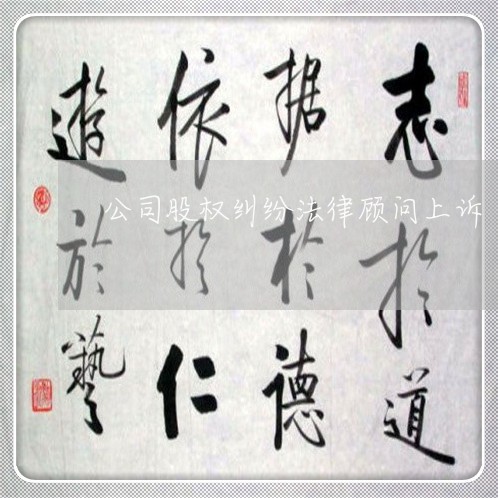 志於道
据於德
依於仁
遊於藝
公司股权纠纷法律顾问上诉